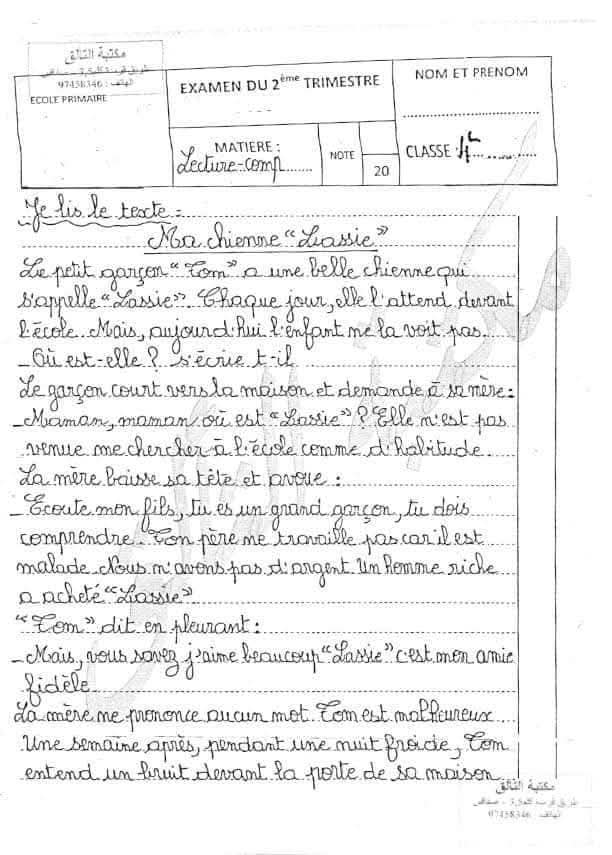 مكتبة التألق
طريق قرمدة كلم 3,5 - صفاقس
الهاتف : 97458346
ECOLE PRIMAIRE
EXAMEN DU 2ème TRIMESTRE
NOM ET PRENOM
MATIERE :
Lecture-comp
NOTE
20
CLASSE 4
Je lis le texte :
Ma chienne "Lassie"
Le petit garçon "Tom" a une belle chienne qui
s'appelle "Lassie". Chaque jour, elle l'attend devant
l'école. Mais, aujourd'hui l'enfant ne la voit pas.
_ Où est-elle ? s'écrie t-il
Le garçon court vers la maison et demande à sa mère :
_ Maman, maman où est "Lassie" ? Elle n'est pas
venue me chercher à l'école comme d'habitude.
La mère baisse sa tête et avoue :
_ Ecoute mon fils, tu es un grand garçon, tu dois
comprendre. Ton père ne travaille pas car il est
malade. Nous n'avons pas d'argent. Un homme riche
a acheté "Lassie"
"Tom" dit en pleurant :
_ Mais, vous savez j'aime beaucoup "Lassie" c'est mon amie
fidèle
La mère ne prononce aucun mot. Tom est malheureux.
Une semaine après, pendant une nuit froide, Tom
entend un bruit devant la porte de sa maison.
مكتبة التألق
طريق قرمدة كلم 3,5 - صفاقس
الهاتف : 97458346